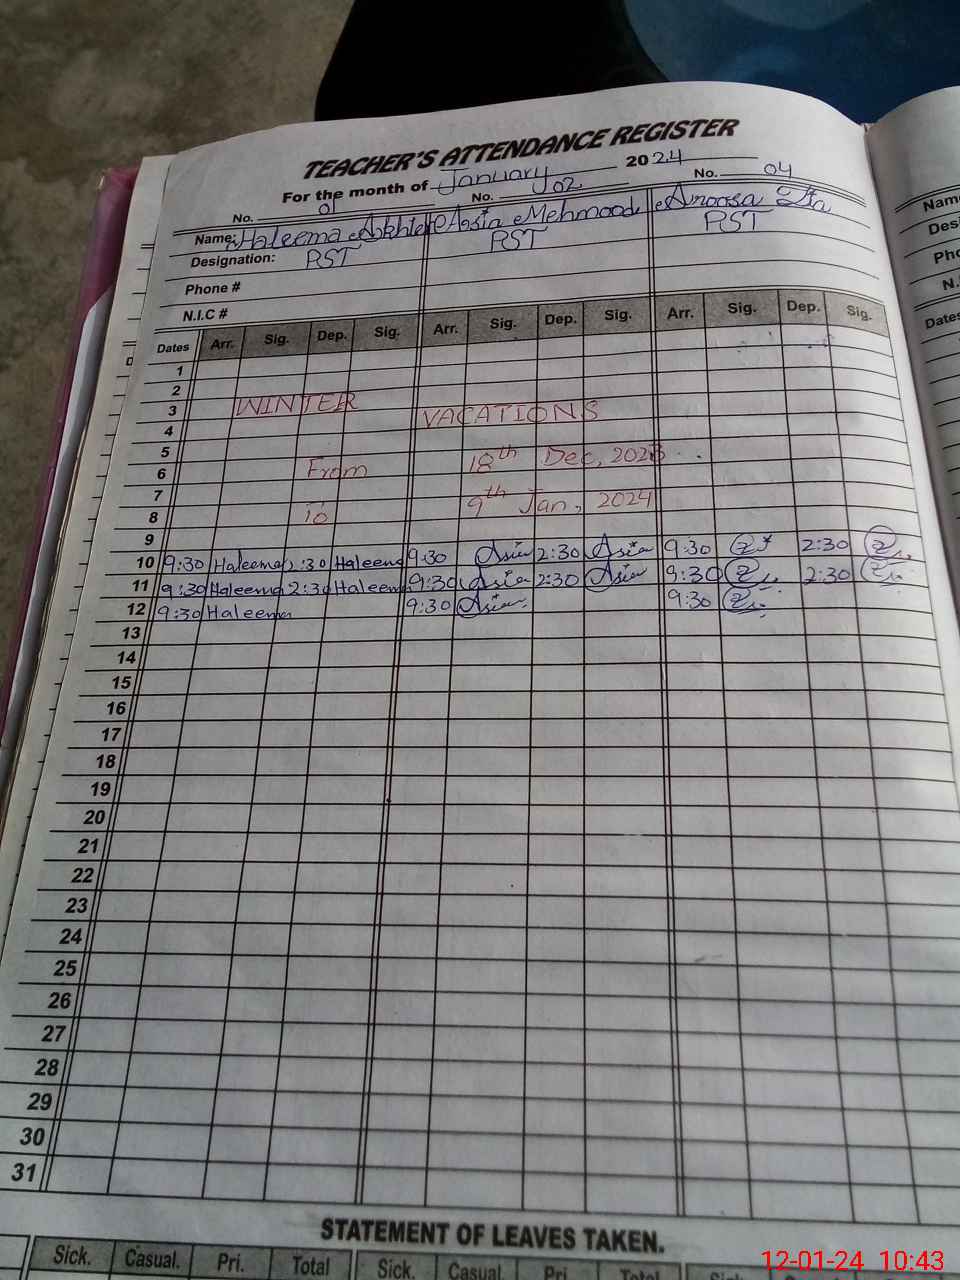 TEACHER'S ATTENDANCE REGISTER
For the month of January 2024
No. 01 No. 02 No. 04
Name: Haleema Aasia Mehmood Anoosa
Designation: PST PST PST
Phone #
N.I.C #
Dates Arr. Sig. Dep. Sig. Arr. Sig. Dep. Sig. Arr. Sig. Dep. Sig.
1
2
3 WINTER VACATIONS
4
5
6 From 18th Dec, 2023
7
8 to 9th Jan, 2024
9
10 9:30 Haleema :30 Haleema 9:30 Asia 2:30 Asia 9:30 2:30
11 9:30 Haleema 2:30 Haleema 9:30 Asia 2:30 Asia 9:30 2:30
12 9:30 Haleema 9:30 Asia 9:30
13
14
15
16
17
18
19
20
21
22
23
24
25
26
27
28
29
30
31
STATEMENT OF LEAVES TAKEN.
Sick. Casual. Pri. Total Sick. Casual. Pri. Total
Name
Desi
Pho
N.I
Dates
12-01-24 10:43